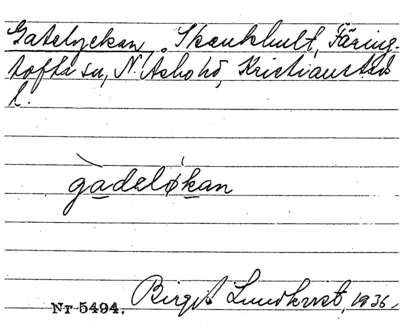 Gatelyckan, Skänkhult, Färing-
tofta sn, N. Åsbo hd, Kristianstads
l.
gadeløkan
Nr 5494. Birgit Lundkvist, 1936.